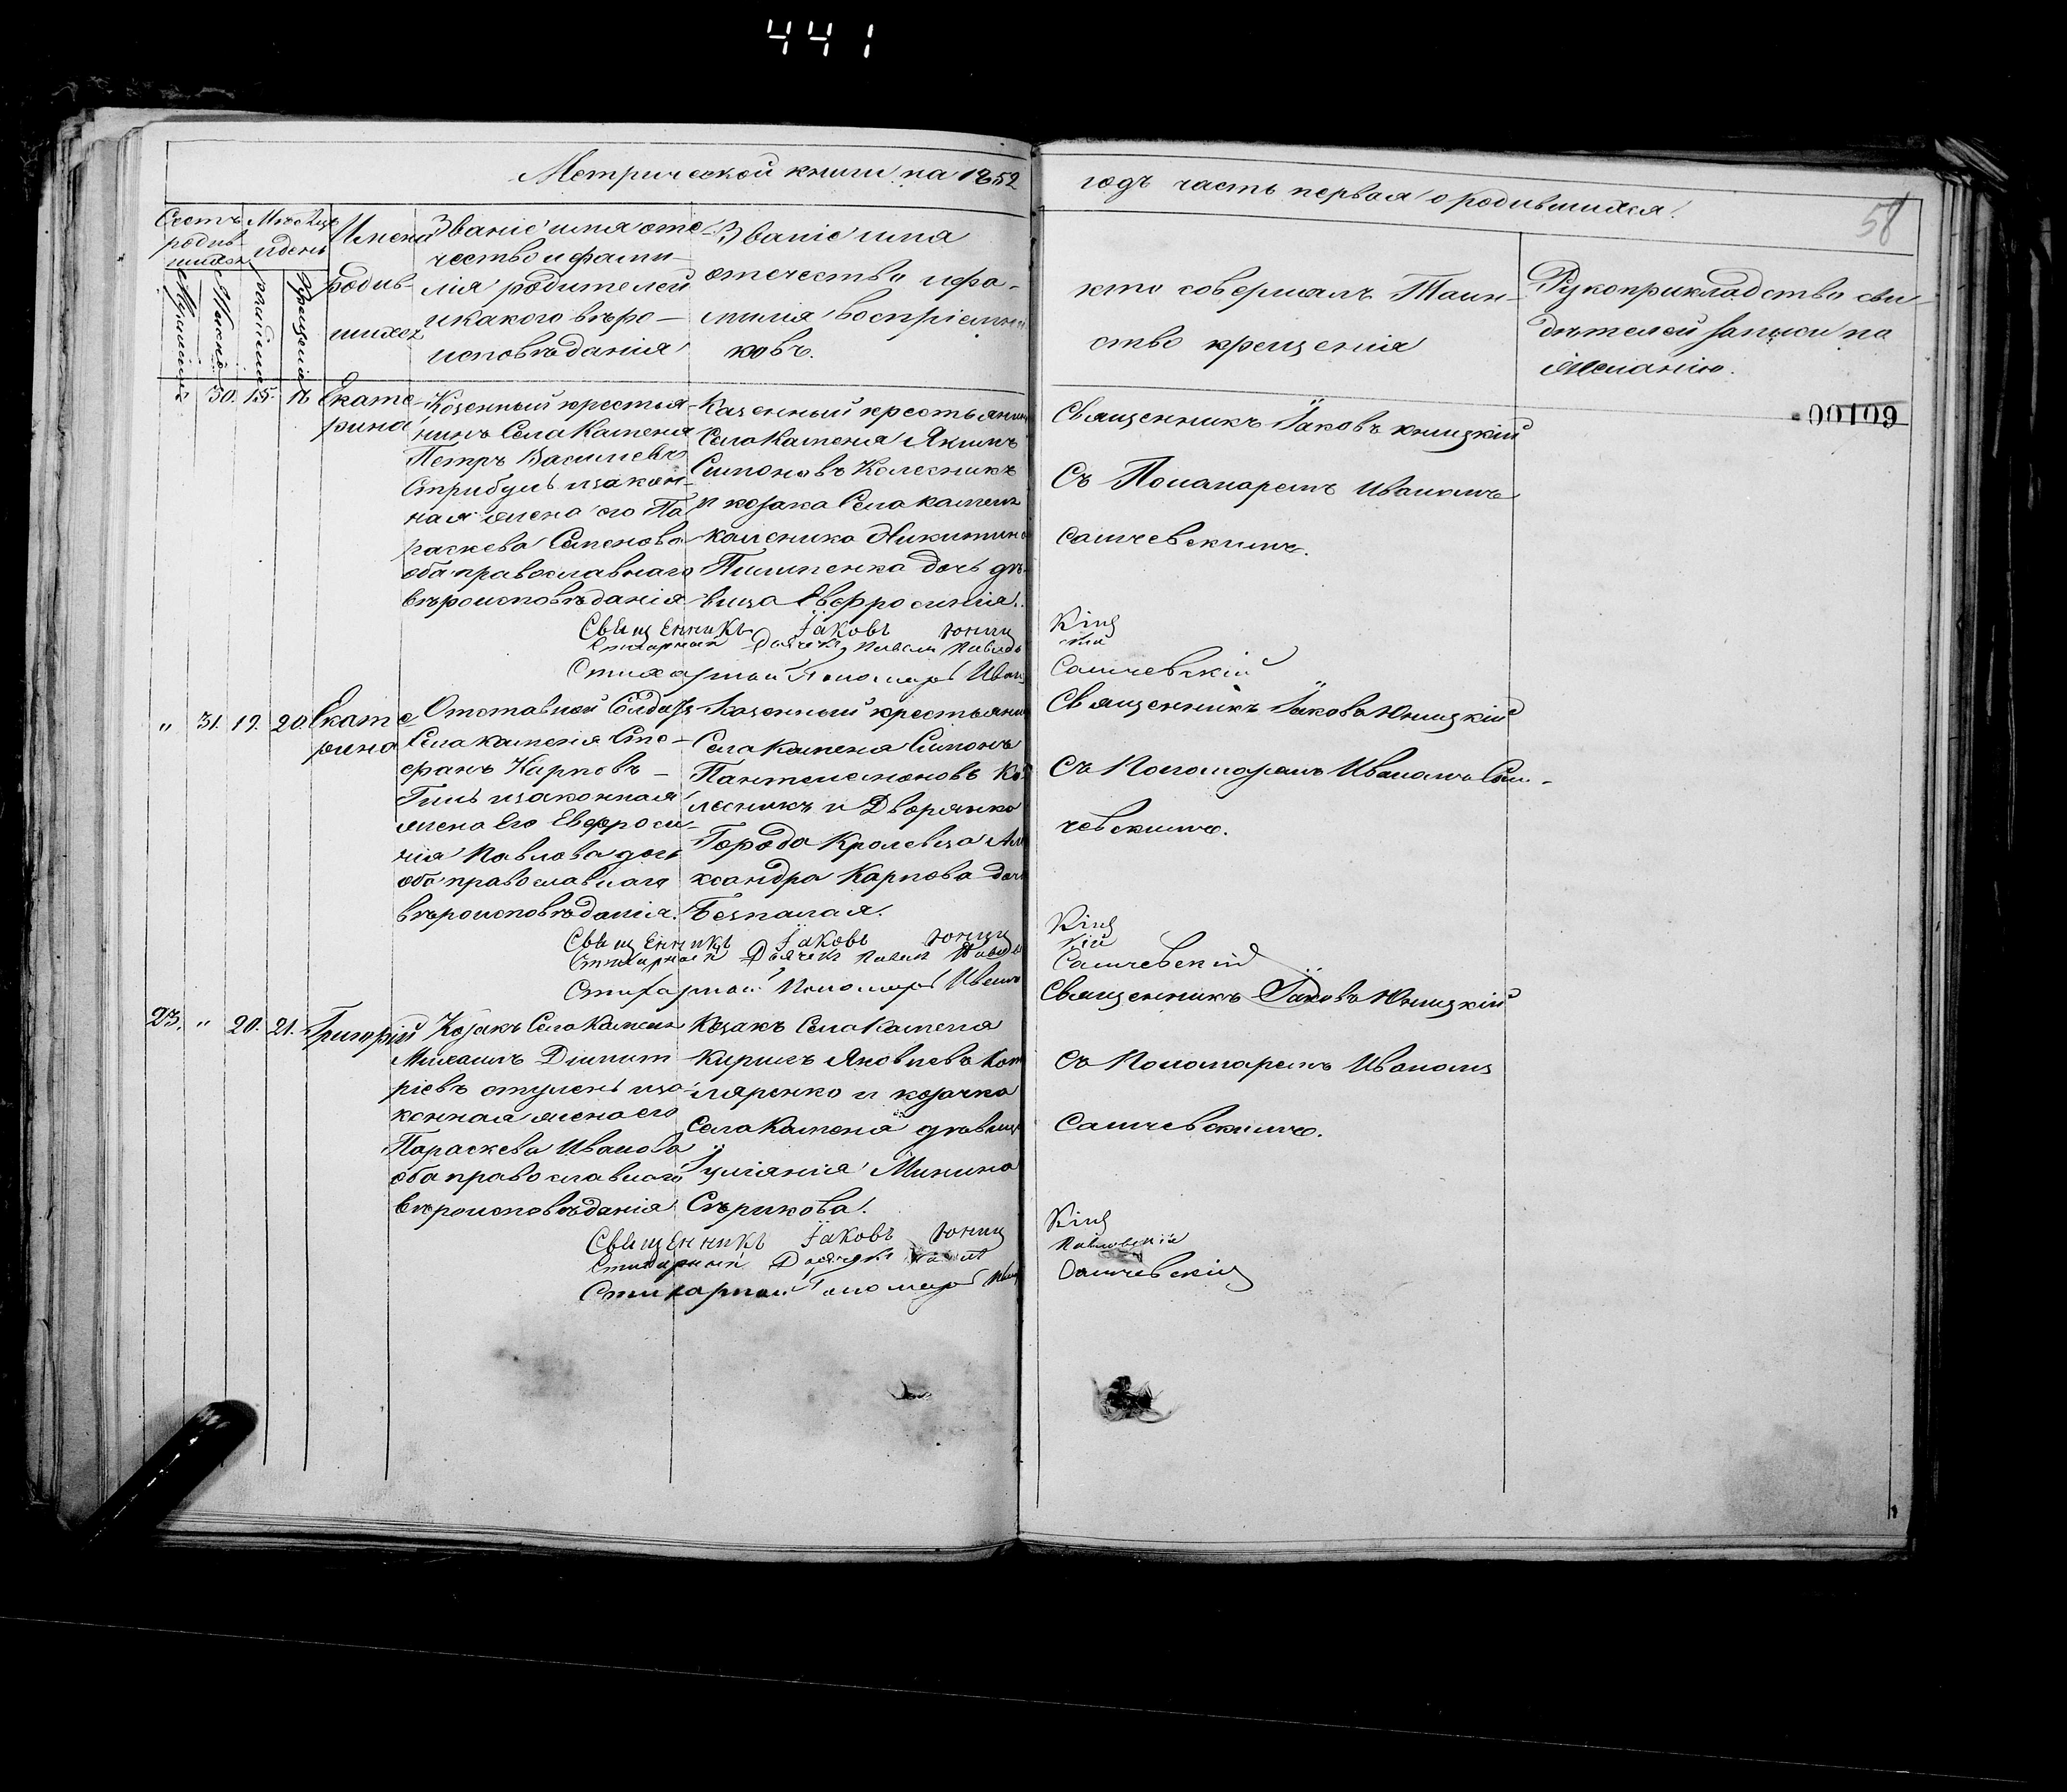 441
Метрической книги на 1852
годъ часть первая о родившихся.
58
Счетъ родив-шихся
Месяцъ и день
Мужеска
Женска
рожденія
крещенія
Имена
родив-
шихся
Званіе имя оте-
чество и фами-
лія родителей
и какого веро-
исповѣданія
Званіе имя
отечество и фа-
милія воспріемни
ковъ.
кто совершалъ Таин-
ство крещенія
Рукоприкладство сви
дѣтелей записи по
желанію.
00109
" 30. 15. 16 Екате-
рина
Казенный крестья-
нинъ Села Каменя
Петръ Васильевъ
Стрибуль и закон-
ная жена его Па
раскева Семенова
оба православнаго
вѣроисповѣданія
Казенный крестьянин
Села Каменя Якимъ
Симоновъ Колесникъ
и козака Села Камень
каленика Никитина
Пилипенка дочь дѣ-
вица Евфросинія.
Священникъ Іаковъ Юницкій
Съ Пономаремъ Иваномъ
Самчевскимъ.
Священникъ Іаковъ Юниц
кій
Стихарный Дьячекъ Павелъ Павлов
скій
Стихарный Пономарь Иван
Самчевскій
" 31. 19. 20. Екате
рина
Отставной Солдатъ
Села Каменя Сте-
фанъ Карповъ
Гиль и законная
жена Его Евфроси-
нія Павлова дочь
оба православнаго
вѣроисповѣданія.
Казенный крестьянин
Села Каменя Симонъ
Пантелеимоновъ Ко
лесникъ и Дворянка
Города Кролевца Але
ксандра Карпова дочь
Безпалая.
Священникъ Іаковъ Юницкій
Съ Пономаремъ Иваномъ Сам-
чевскимъ.
Священникъ Іаковъ Юниц
кій
Стихарный Дьячекъ Павелъ Павлов
кій
Стихарный Пономарь Иванъ
Самчевскій
23. " 20. 21. Григорій
Козакъ Села Каменя
Михаилъ Димит
ріевъ Ступень и за
конная жена его
Параскева Иванова
оба православнаго
вѣроисповѣданія
Козакъ Села Каменя
Кирилъ Яковлевъ Кот
ляренко и козачка
Села Каменя дѣвица
Іуліанія Минина
Сѣрикова.
Священникъ Іаковъ Юницкій
Съ Пономаремъ Иваномъ
Самчевскимъ.
Священникъ Іаковъ Юниц
кій
Стихарный Дьячекъ Павелъ
Павловскій
Стихарный Пономарь Иван
Самчевскій